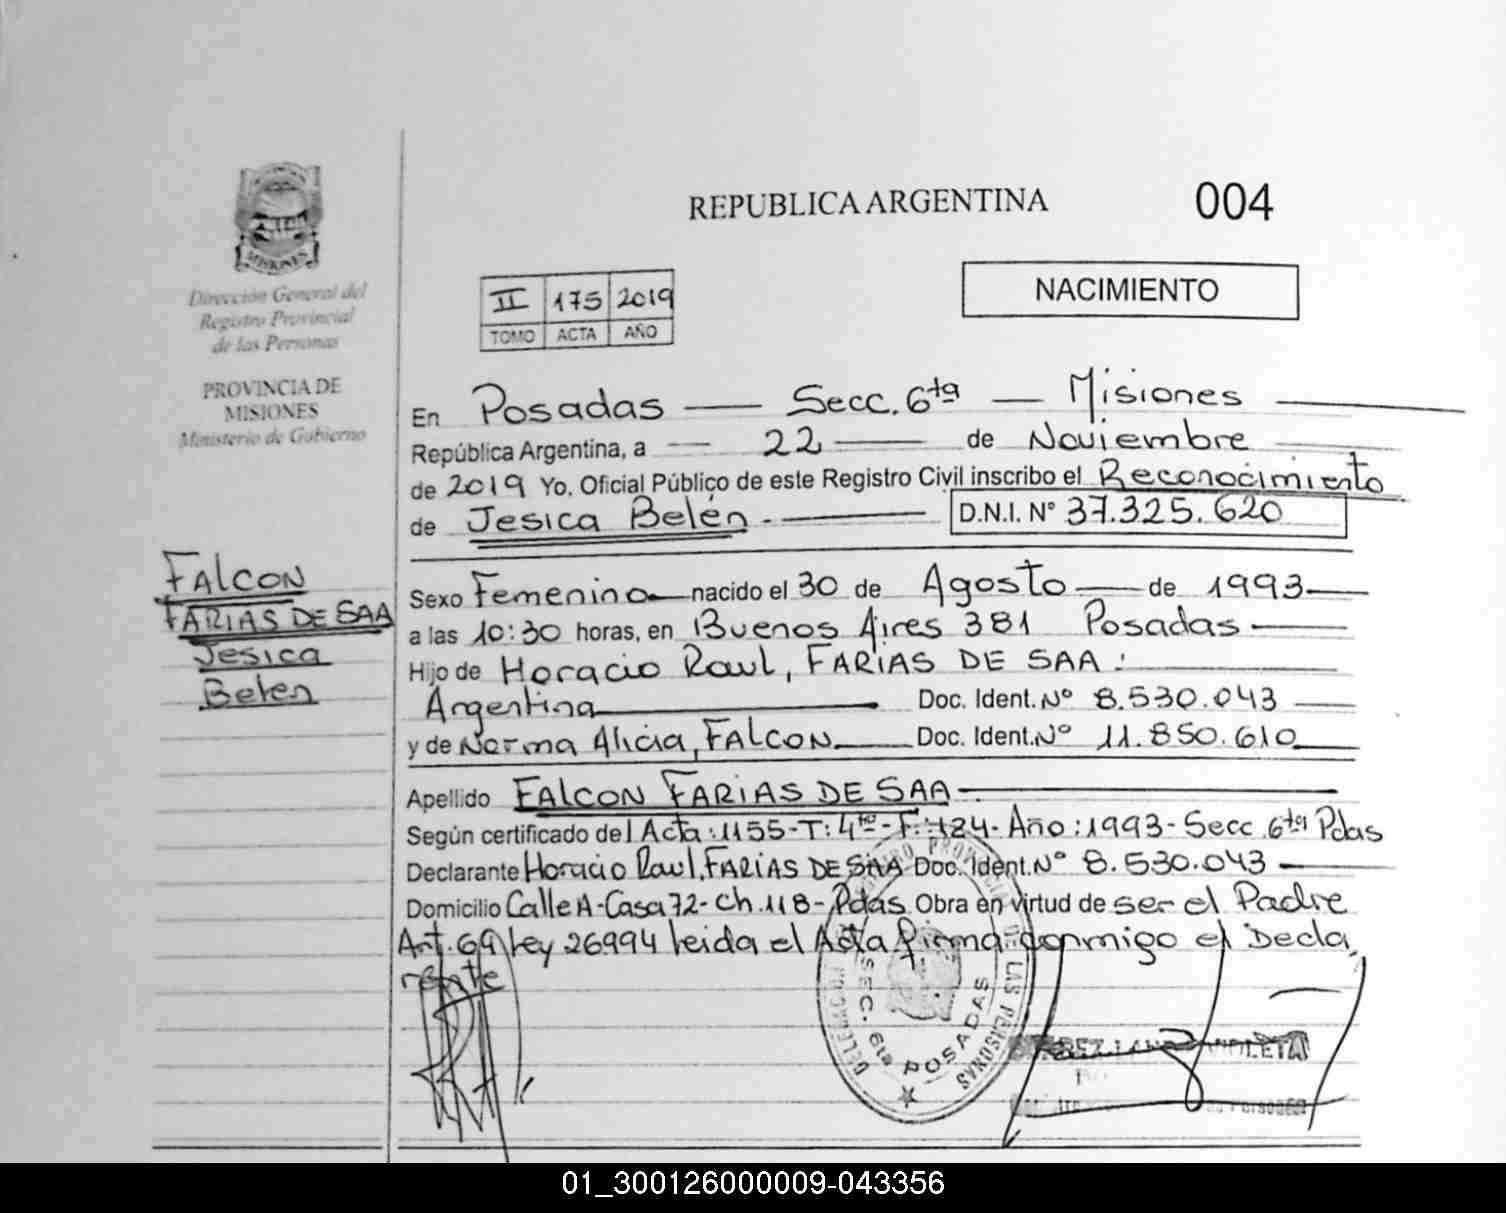 REPUBLICA ARGENTINA
004
MISIONES
Dirección General del
Registro Provincial
de las Personas
PROVINCIA DE
MISIONES
Ministerio de Gobierno
II 175 2019
TOMO ACTA AÑO
NACIMIENTO
En Posadas — Secc. 6ta — Misiones
República Argentina, a — 22 — de Noviembre
de 2019 Yo, Oficial Público de este Registro Civil inscribo el Reconocimiento
de Jesica Belén.- D.N.I. N° 37.325.620
FALCON
FARIAS DE SAA
Jesica
Belen
Sexo Femenino nacido el 30 de Agosto — de 1993
a las 10:30 horas, en Buenos Aires 381 Posadas
Hijo de Horacio Raul, FARIAS DE SAA:
Argentina Doc. Ident. N° 8.530.043
y de Norma Alicia, FALCON Doc. Ident. N° 11.850.610
Apellido FALCON FARIAS DE SAA
Según certificado del Acta: 1155-T: 4to-F: 124- Año: 1993- Secc 6ta Pdas
Declarante Horacio Raul, FARIAS DE SAA Doc. Ident. N° 8.530.043
Domicilio Calle A-Casa 72- Ch. 118- Pdas Obra en virtud de ser el Padre
Art. 69 Ley 26994 leida el Acta firma conmigo el Decla
rante
LAS PERSONAS
SEC. 6ta POSADAS
01_300126000009-043356